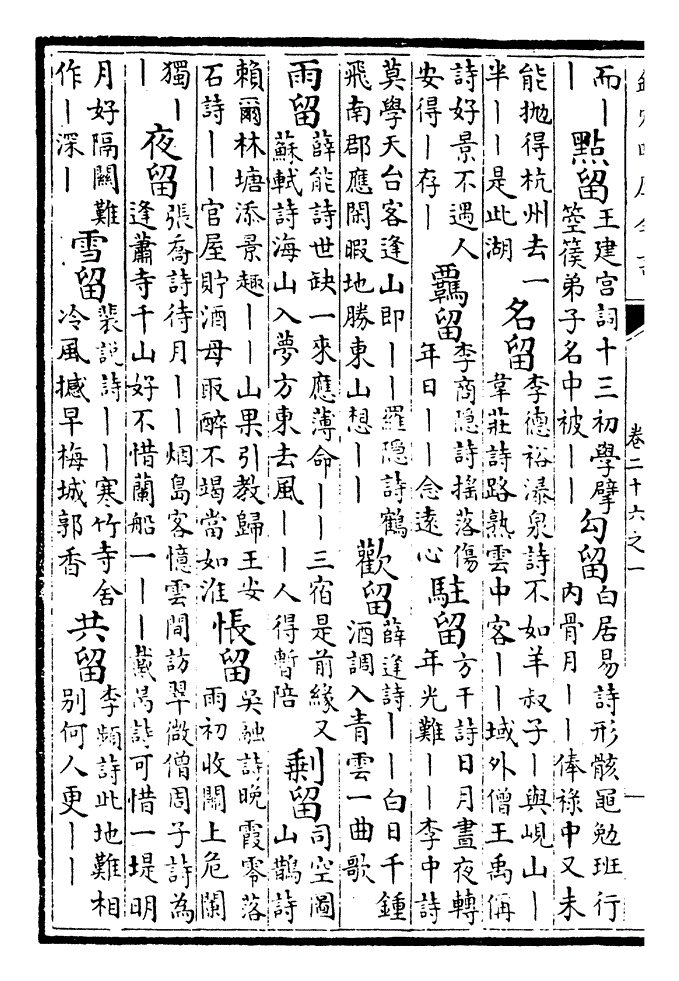 卷二十六之一
一
而丨
丨
點留
王建宫詞十三初學擘
箜篌弟子名中被丨丨
勾留
白居易詩形骸黽勉班行
内骨月丨丨俸祿中又未
能抛得杭州去一
半丨丨是此湖
名留
李德裕瀑泉詩不如羊叔子丨與峴山丨
韋莊詩路熟雲中客丨丨域外僧王禹偁
詩好景不遇人
安得丨存丨
羈留
李商隱詩搖落傷
年日丨丨念遠心
駐留
方干詩日月晝夜轉
年光難丨丨李中詩
莫學天台客逢山即丨丨羅隱詩鶴
飛南郡應閑暇地勝東山想丨丨
歡留
薛逢詩丨丨白日千鍾
酒調入青雲一曲歌
雨留
薛能詩世缺一來應薄命丨丨三宿是前緣又
蘇軾詩海山入夢方東去風丨丨人得暫陪
剩留
司空圖
山鵲詩
賴爾林塘添景趣丨丨山果引教歸王安
石詩丨丨官屋貯酒母取醉不竭當如淮
悵留
吳融詩晚霞零落
雨初收關上危闌
獨丨
丨
夜留
張喬詩待月丨丨烟島客憶雲間訪翠微僧周子詩為
逢蕭寺千山好不惜蘭船一丨丨戴昺詩可惜一堤明
月好隔關難
作丨深丨
雪留
裴説詩丨丨寒竹寺舍
冷風撼早梅城郭香
共留
李頻詩此地難相
别何人更丨丨